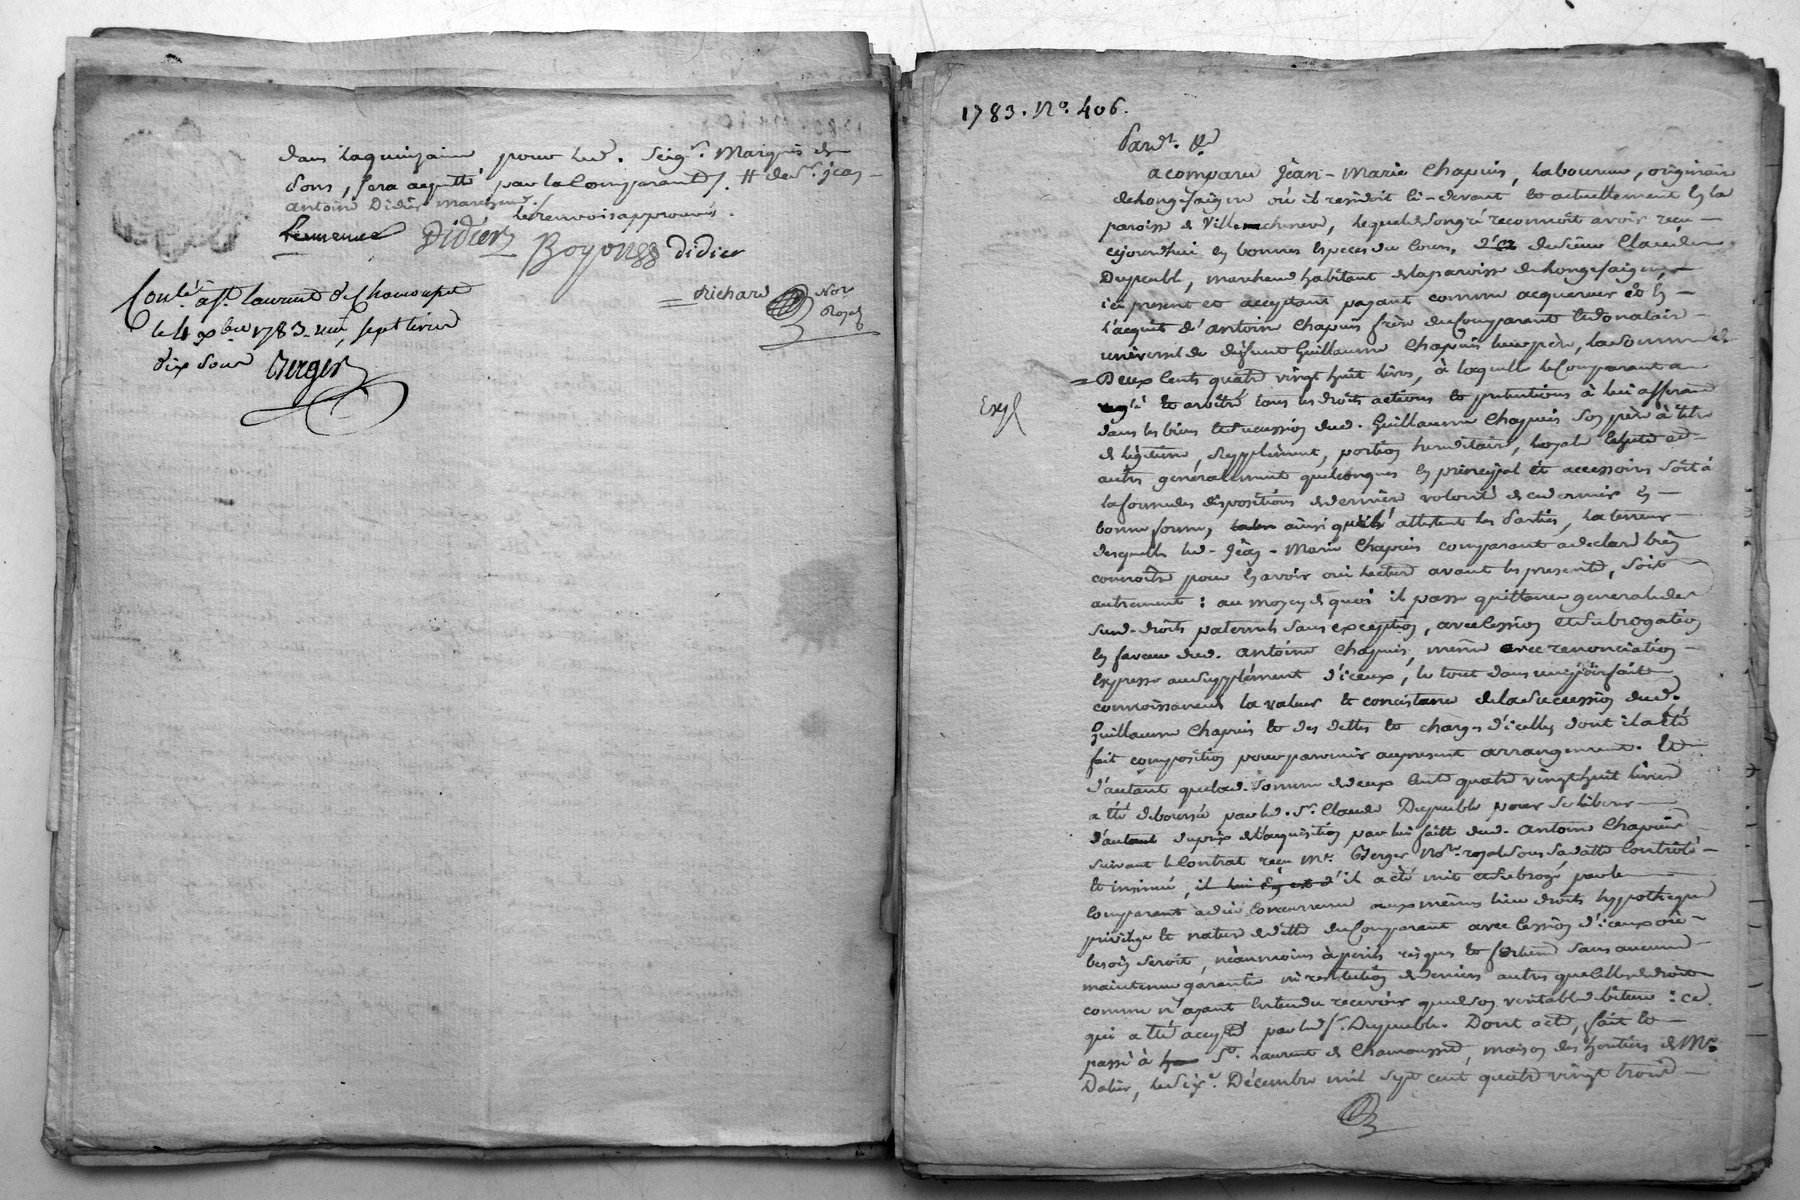 dans la quinzaine pour led. Seigr. Marquis de
Sons, sera acquitté par la Comparant /. # de sr. jean
antoine Didier marchand.
les renvois approuvés.
Didier Boyon Didier
Richard Not
Royal
Conté. à St. Laurent de Chamousset
le 4 xbre 1783. reçu sept livres
dix sous Berger
1783. No. 406.
Pardt. &
a comparu Jean-Marie Chapuis, laboureur, originaire
de Longessaigne où il residoit ci-devant et actuellement en la
paroisse de Villechenève, lequel de son gré reconnoit avoir reçu
cejourd'hui en bonnes especes du Cours, du sieur Claude
Dupeuble, marchand habitant de la paroisse de Longessaigne,
ici present et acceptant payant comme acquereur et en
l'acquit d'antoine Chapuis frère du Comparant et donataire
universel de défunt Guillaume Chapuis leur père, la somme de
Deux Cents quatre vingt huit livres, à laquelle le Comparant a
Exp
reglé et arbitré tous les droits actions et prétentions à lui afferant
dans les biens et succession dud. Guillaume Chapuis son père à titre
de légitime, supplément, portion hereditaire, loyale echute et
autres generalement quelconques en principal et accessoires soit à
la forme des dispositions de dernière volonté de ce dernier en
bonne forme, ainsi qu'ils attestent les Parties, la teneur
desquelles led. Jean-Marie Chapuis comparant a declaré bien
connoitre pour en avoir oui lecture avant les presentes, soit
autrement : au moyen de quoi il passe quittance generale de
sesd. droits paternels sans exception, avec Cession et subrogation
en faveur dud. antoine Chapuis, même avec renonciation
expresse au supplément d'iceux, le tout dans une parfaite
connoissance de la valeur et consistance de la succession dud.
Guillaume Chapuis et des dettes et charges d'icelle, dont il a été
fait composition pour parvenir au present arrangement. Et
d'autant que lad. somme de deux Cent quatre vingt huit livres
a été deboursée par led. Sr. Claude Dupeuble pour se liberer
d'autant du prix de l'acquisition par lui faite dud. antoine Chapuis
suivant le Contrat reçu Me. Berger Notre. royal sous sa datte Controlé
et insinué, il a été mis et subrogé par le
Comparant à due Concurrence aux mêmes lieu droits hypotheque
privilege et nature de dette du Comparant avec Cession d'iceux où
besoin seroit, néanmoins à perils risques et fortune sans aucune
maintenue garantie ni restitution de deniers autres que celles de droit
comme n'ayant entendu recevoir que de son veritable debiteur : ce
qui a été accepté par led. Sr. Dupeuble. Dont acte, fait et
passé à St. Laurent de Chamousset, maison des heritiers de Me.
Dalier, le six. Décembre mil sept cent quatre vingt trois